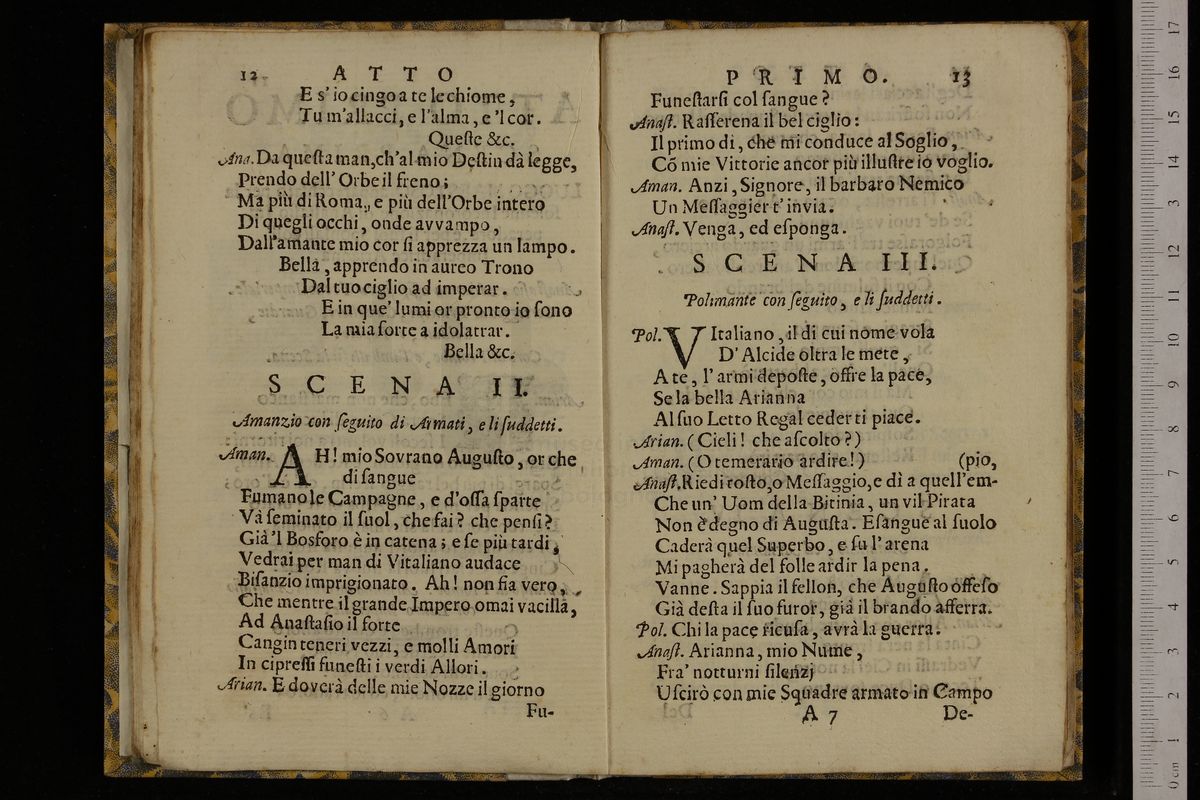 12 ATTO
E s' io cingo a te le chiome,
Tu m'allacci, e l'alma, e 'l cor.
Queſte &c.
Ana. Da queſta man, ch'al mio Deſtin dà legge,
Prendo dell' Orbe il freno;
Ma più di Roma, e più dell'Orbe intero
Di quegli occhi, onde avvampo,
Dall'amante mio cor ſi apprezza un lampo.
Bella, apprendo in aureo Trono
Dal tuo ciglio ad imperar.
E in que' lumi or pronto io ſono
La mia ſorte a idolatrar.
Bella &c.
SCENA II.
Amanzio con ſeguito di Armati, e li ſuddetti.
Aman. AH! mio Sovrano Auguſto, or che
di ſangue
Fumano le Campagne, e d'oſſa ſparte
Và ſeminato il ſuol, che fai? che penſi?
Già 'l Bosforo è in catena; e ſe più tardi,
Vedrai per man di Vitaliano audace
Biſanzio imprigionato. Ah! non fia vero,
Che mentre il grande Impero omai vacilla,
Ad Anaſtaſio il forte
Cangin teneri vezzi, e molli Amori
In cipreſſi funeſti i verdi Allori.
Arian. E doverà delle mie Nozze il giorno
Fu-
PRIMO. 13
Funeſtarſi col ſangue?
Anaſt. Raſſerena il bel ciglio:
Il primo di, che mi conduce al Soglio,
Cō mie Vittorie ancor più illuſtre io voglio.
Aman. Anzi, Signore, il barbaro Nemico
Un Meſſaggier t' invia.
Anaſt. Venga, ed eſponga.
SCENA III.
Polimante con ſeguito, e li ſuddetti.
Pol. VItaliano, il di cui nome vola
D' Alcide oltra le mete,
A te, l' armi depoſte, offre la pace,
Se la bella Arianna
Al ſuo Letto Regal ceder ti piace.
Arian. (Cieli! che aſcolto?)
Aman. (O temerario ardire!) (pio,
Anaſt. Riedi toſto, o Meſſaggio, e dì a quell'em-
Che un' Uom della Bitinia, un vil Pirata
Non è degno di Auguſta. Eſangue al ſuolo
Caderà quel Superbo, e ſu l' arena
Mi pagherà del folle ardir la pena.
Vanne. Sappia il fellon, che Auguſto offeſo
Già deſta il ſuo furor, già il brando afferra.
Pol. Chi la pace ricuſa, avrà la guerra.
Anaſt. Arianna, mio Nume,
Fra' notturni ſilenzj
Uſcirò con mie Squadre armato in Campo
A 7 De-